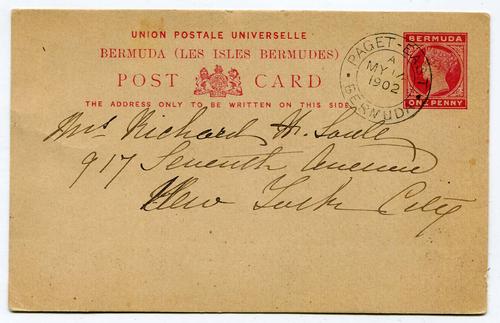 UNION POSTALE UNIVERSELLE
BERMUDA (LES ISLES BERMUDES)
POST CARD
THE ADDRESS ONLY TO BE WRITTEN ON THIS SIDE
PAGET-EAST
A
MY 17
1902
BERMUDA
BERMUDA
ONE PENNY
Mrs Richard H. Soule
917 Seventh Avenue
New York City